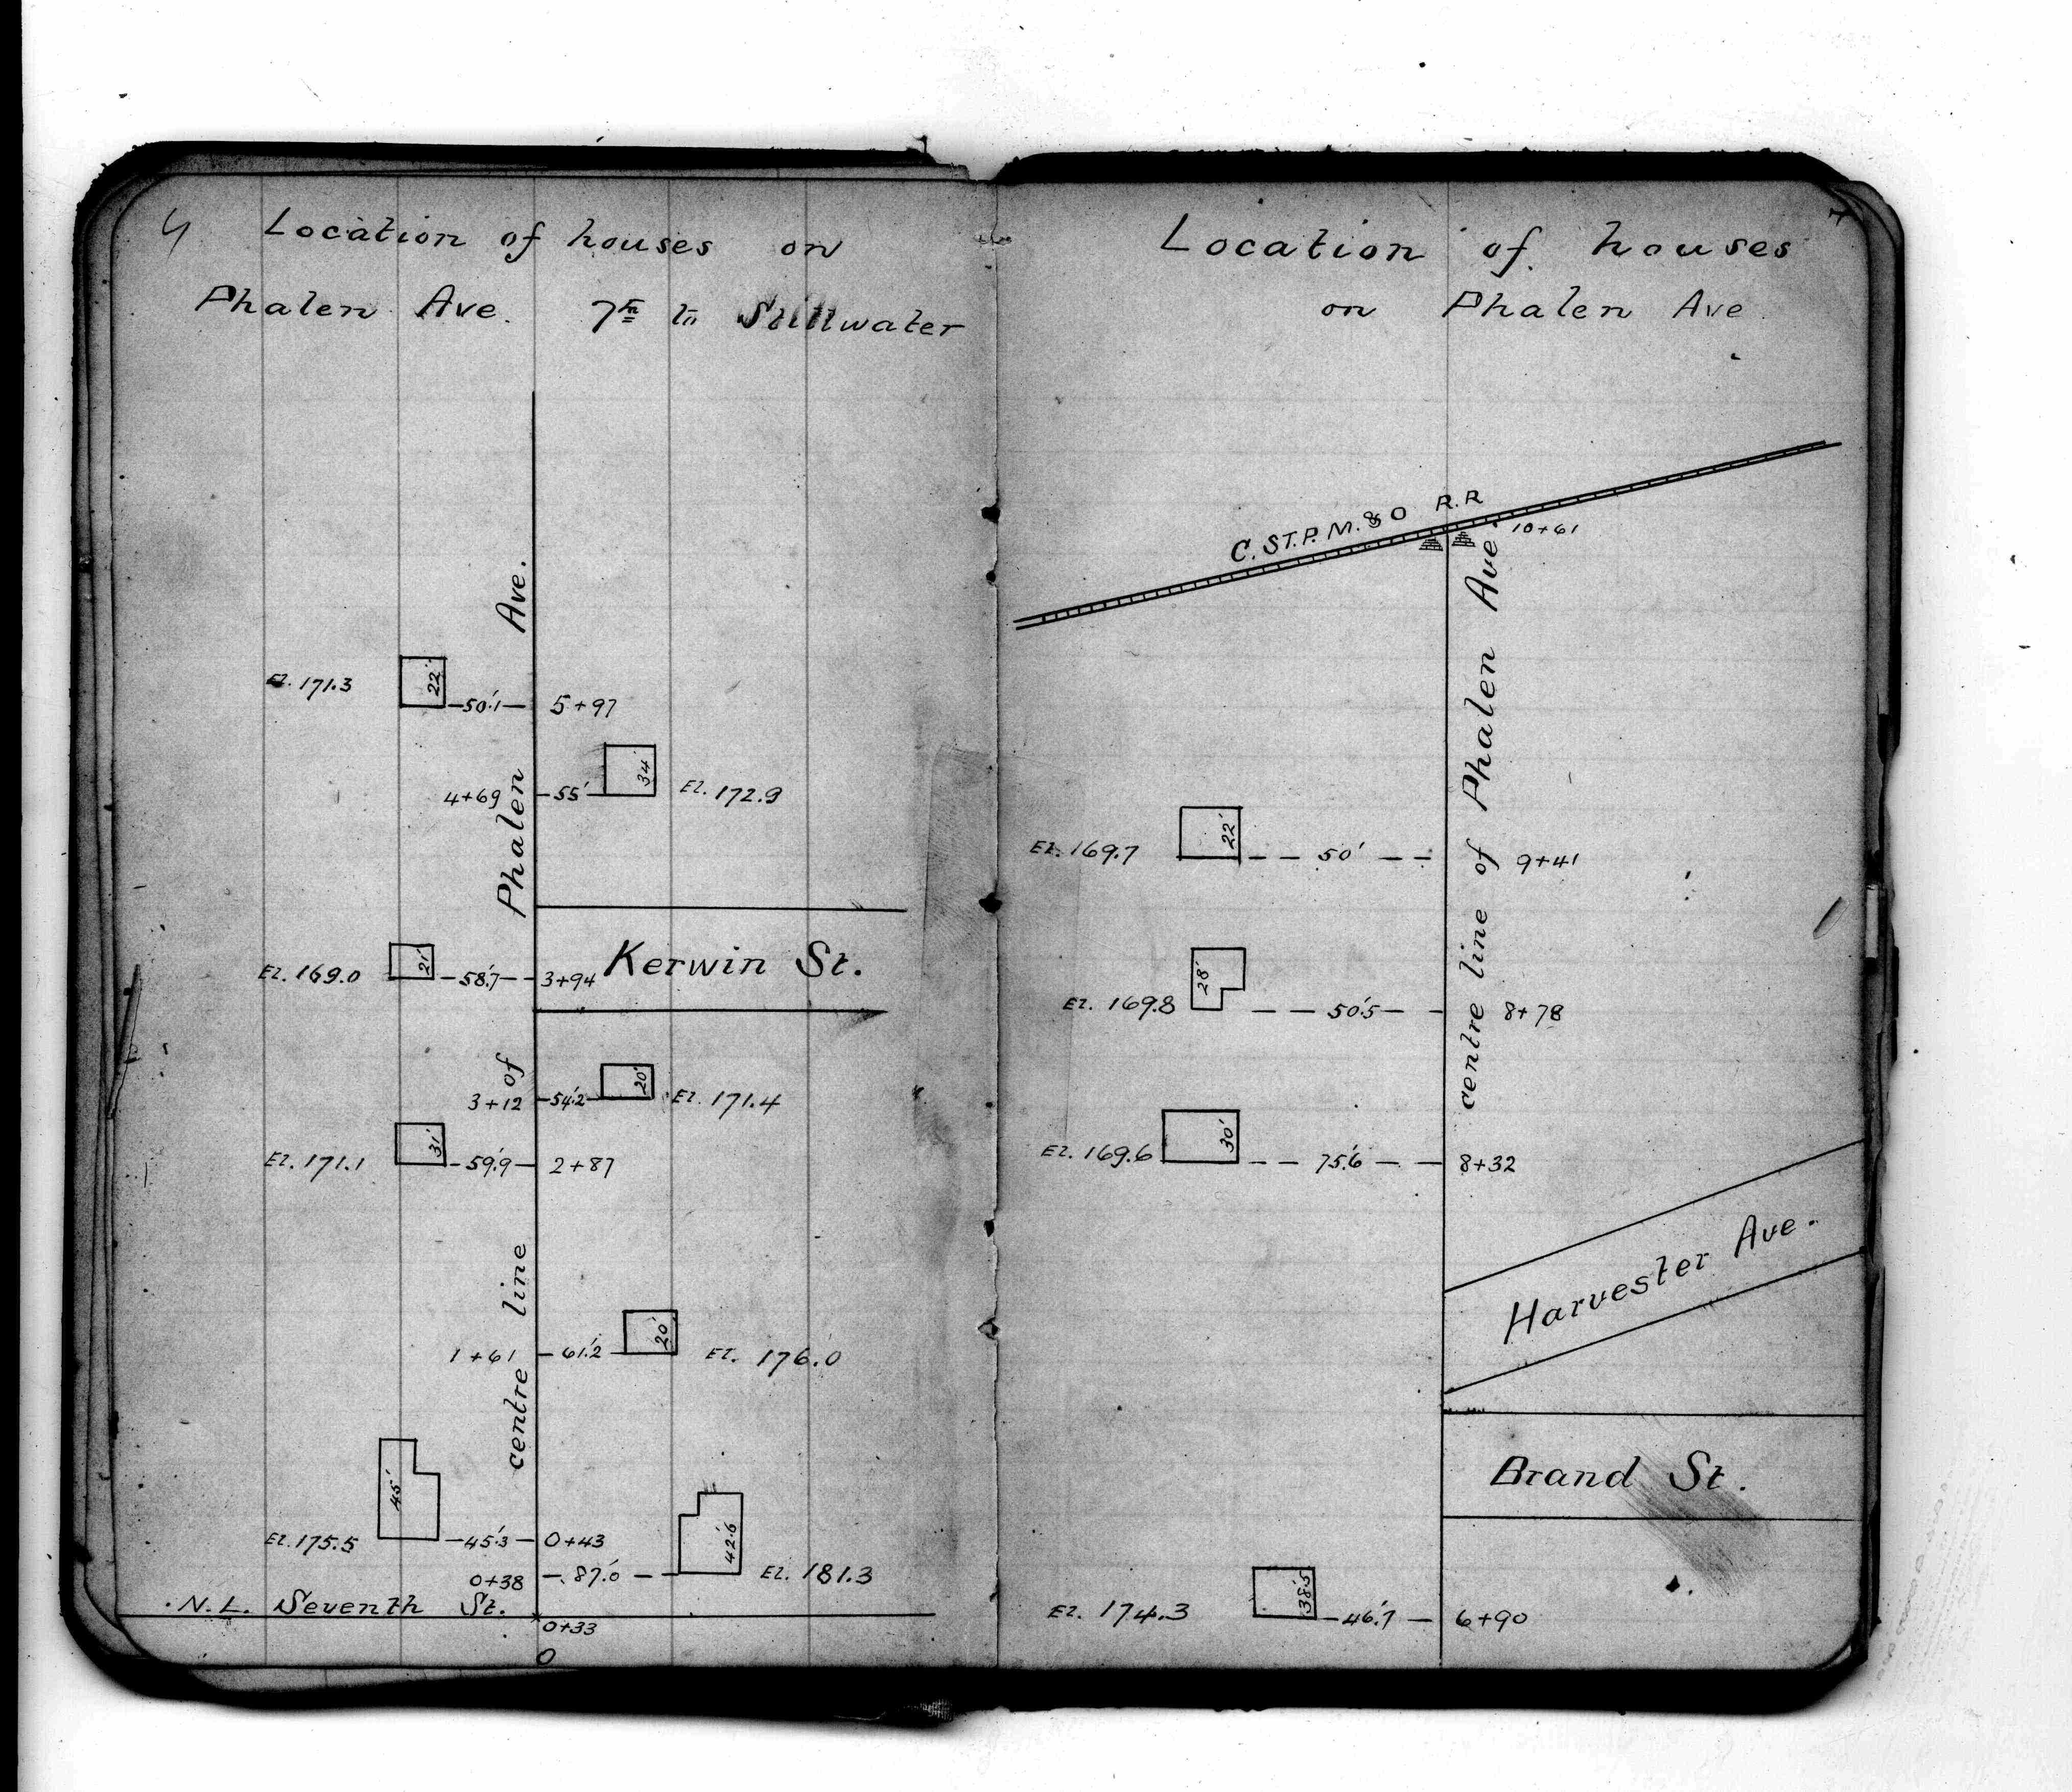 4
Location of houses on
Phalen Ave. 7th to Stillwater
centre line of Phalen Ave.
El. 171.3 22' 50.'1 5+97
4+69 55' 34 El. 172.9
El. 169.0 21' 58.'7 3+94 Kerwin St.
3+12 54.'2 20' El. 171.4
El. 171.1 31' 59.'9 2+87
1+61 61.'2 20' El. 176.0
El. 175.5 45' 45.'3 0+43
0+38 87.'0 42.'6 El. 181.3
N.L. Seventh St.
0+33
0
Location of houses
on Phalen Ave.
C. ST. P. M. & O R.R
10+61
centre line of Phalen Ave.
El. 169.7 22' 50' 9+41
El. 169.8 28' 50.'5 8+78
El. 169.6 30' 75.'6 8+32
Harvester Ave.
Brand St.
El. 174.3 38.'5 46.'7 6+90